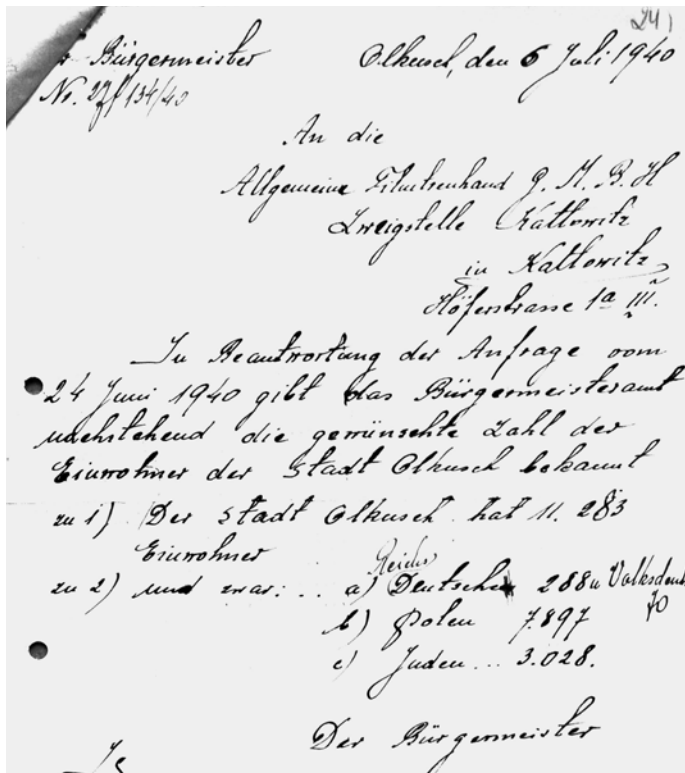 241
Bürgermeister Olkusch, den 6 Juli 1940
No. 134/40
An die
Allgemeine G.M.B.H
Zweigstelle Kattowitz
in Kattowitz
Höferstrasse 1a III.
In Beantwortung der Anfrage vom
24 Juni 1940 gibt das Bürgermeisteramt
nachstehend die gewünschte Zahl der
Einwohner der Stadt Olkusch bekannt
zu 1) Der Stadt Olkusch hat 11.283
Einwohner
Reichs
zu 2) und zwar: .. a) Deutsche 288 u Volksdeut
70
b) Polen 7.897
c) Juden ... 3.028.
Der Bürgermeister